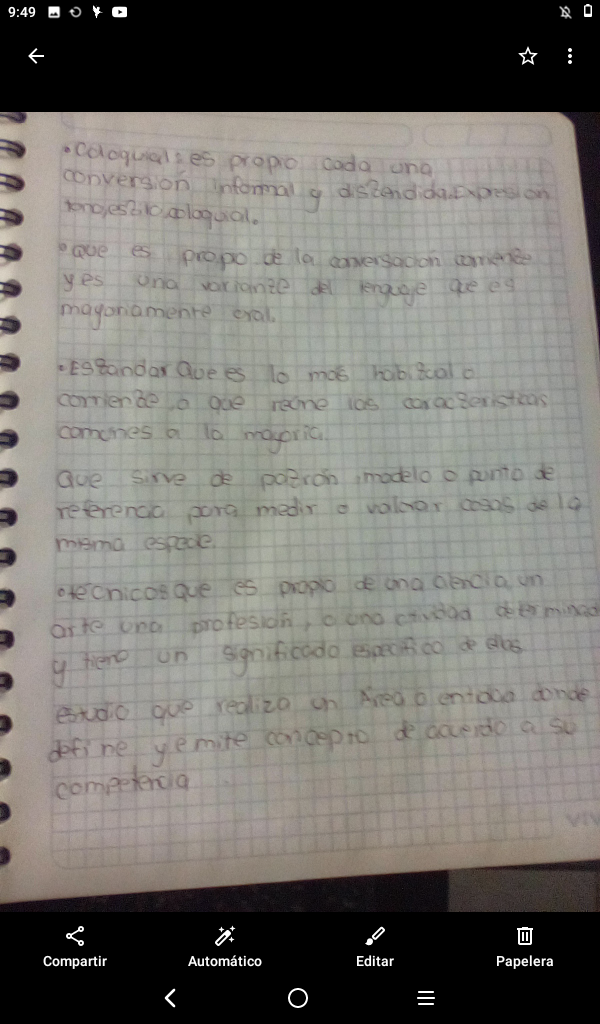 9:49
•Coloquial: es propio cada una
conversión informal y distendida.Expresion
tono,estilo,coloquial.
•que es propio de la conversacion corriente
y es una variante del lenguaje que es
mayoriamente oral.
•Estandar Que es lo mas habitual o
corriente,o que reúne las caracteristicas
comunes a la mayoria.
Que sirve de patrón,modelo o punto de
referencia para medir o valorar cosas de la
misma especie.
•técnicos que es propio de una ciencia, un
arte una profesión, o una determinad
y tiene un significado especifico de ellas
estudio que realiza un Area o entidad donde
define y emite concepto de acuerdo a su
competencia
Compartir
Automático
Editar
Papelera